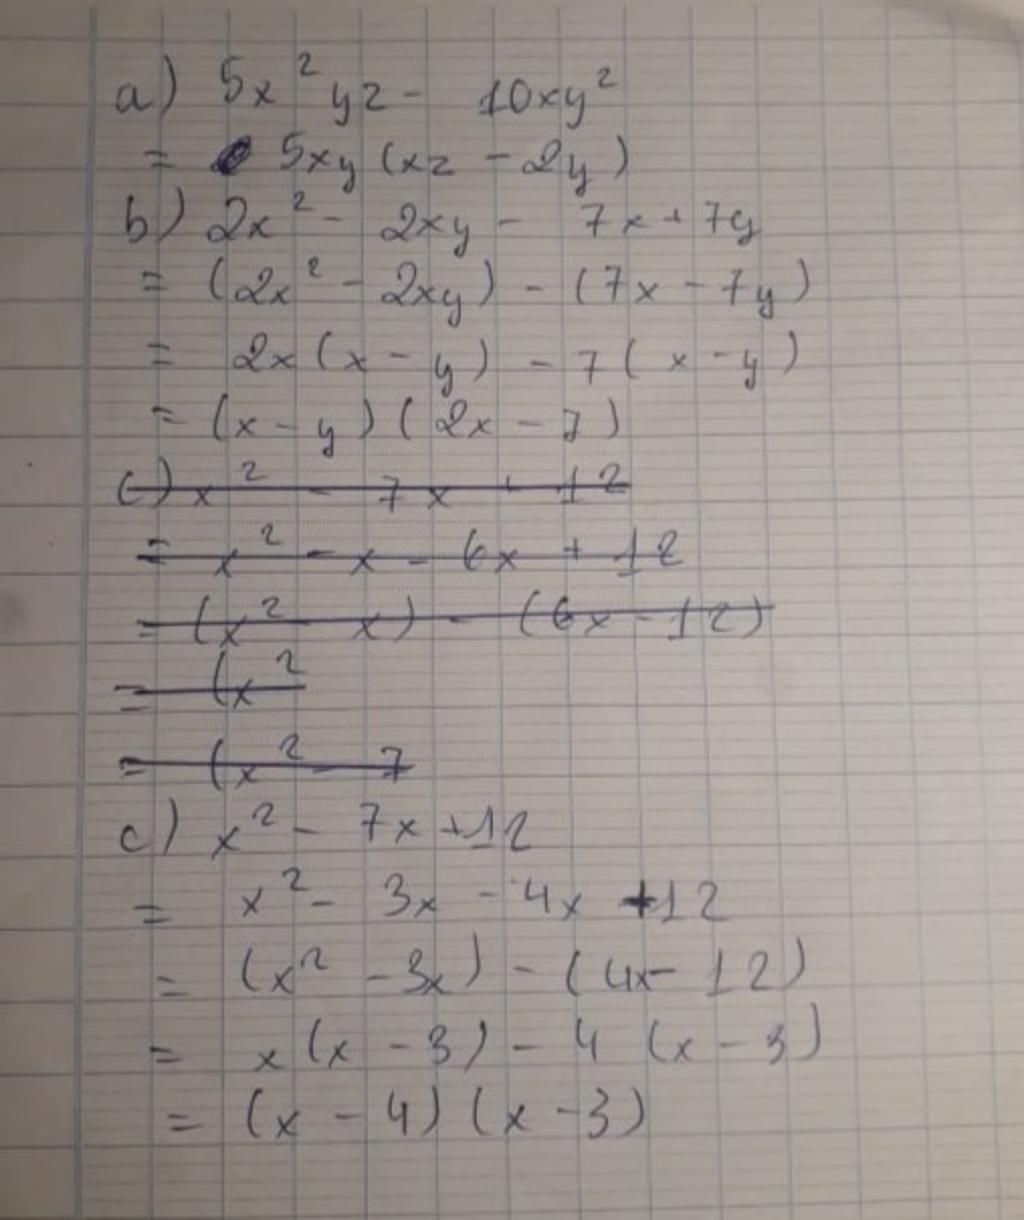 a) 5x²yz - 10xy²
= 5xy (xz - 2y)
b) 2x² - 2xy - 7x + 7y
= (2x² - 2xy) - (7x - 7y)
= 2x (x - y) - 7 (x - y)
= (x - y) (2x - 7)
c) x² - 7x + 12
= x² - x - 6x + 12
= (x² - x) - (6x - 12)
= (x²
= (x² - 7
c) x² - 7x + 12
= x² - 3x - 4x + 12
= (x² - 3x) - (4x - 12)
= x (x - 3) - 4 (x - 3)
= (x - 4) (x - 3)